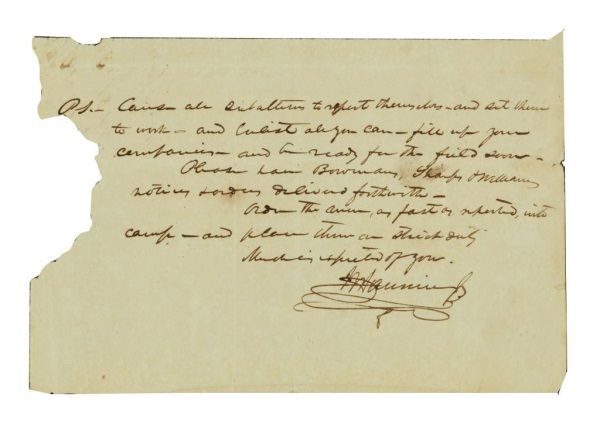 P.S. — Cause all subalterns to report themselves — and set them
to work — and Enlist all you can — fill up your
companies — and be ready for the field soon —
Please have Bowmans, Sharps & Williams
notices & orders delivered forthwith —
Order the men, as fast as reported, into
camp — and place them on strict duty
Much is expected of you.